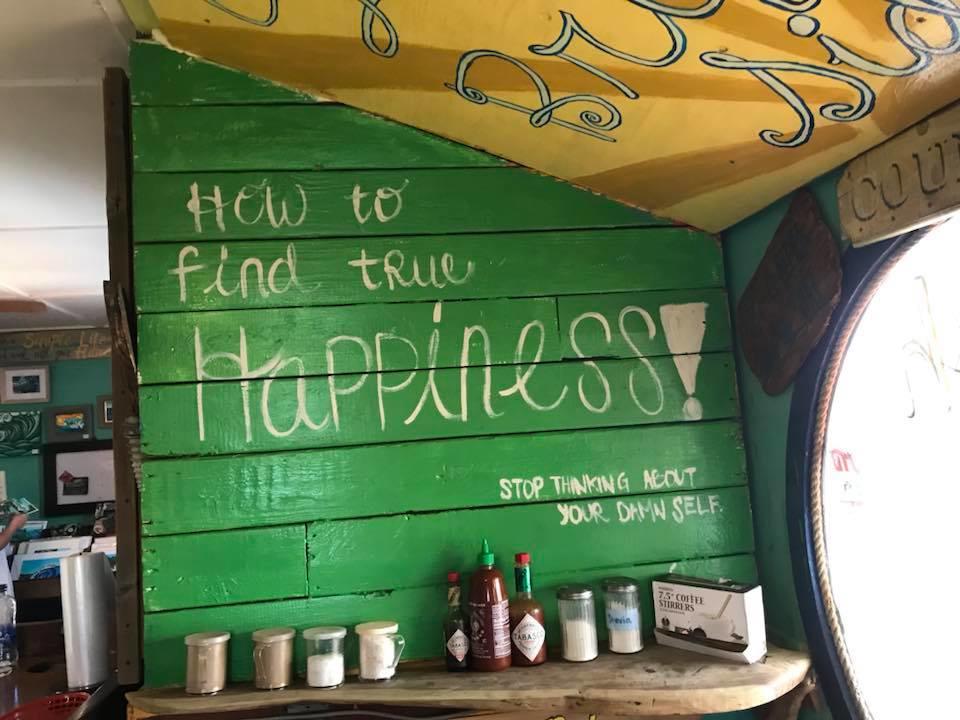 How to
find true
Happiness!
STOP THINKING ABOUT
YOUR DAMN SELF.
COU
Simple Life
TABASCO
TABASCO
Stevia
7.5" COFFEE
STIRRERS